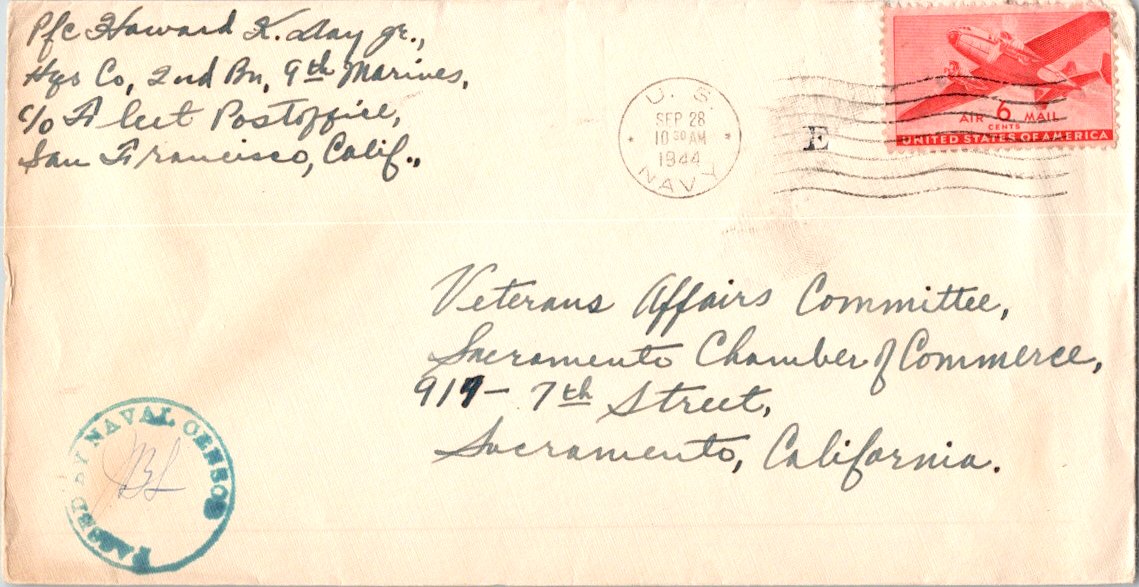 Pfc Howard K. Day Jr.,
Hqs Co, 2nd Bn, 9th Marines,
c/o Fleet Postoffice,
San Francisco, Calif.,
U. S.
SEP 28
10 30 AM
1944
NAVY
E
AIR 6 MAIL
CENTS
UNITED STATES OF AMERICA
Veterans Affairs Committee,
Sacramento Chamber of Commerce,
917 - 7th Street,
Sacramento, California.
PASSED BY NAVAL CENSOR